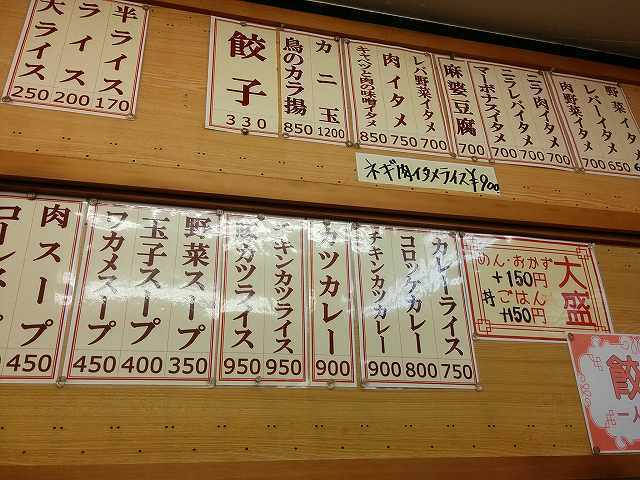 野菜イタ
レバーイタメ
650
肉野菜イタメ
700
ニラ肉イタメ
700
ニラレバイタメ
700
マーボナスイタメ
700
麻婆豆腐
700
レバ野菜イタメ
700
肉イタメ
750
キャベツと肉の味噌イタメ
850
カニ玉
1200
鳥のカラ揚
850
餃子
330
半ライス
170
ライス
200
大ライス
250
ネギ肉イタメライス¥900
大盛
めん・おかず
+150円
丼ごはん
+150円
餃
一人
カレーライス
750
コロッケカレー
800
チキンカツカレー
900
カツカレー
900
チキンカツライス
950
豚カツライス
950
野菜スープ
350
玉子スープ
400
ワカメスープ
450
肉スープ
450